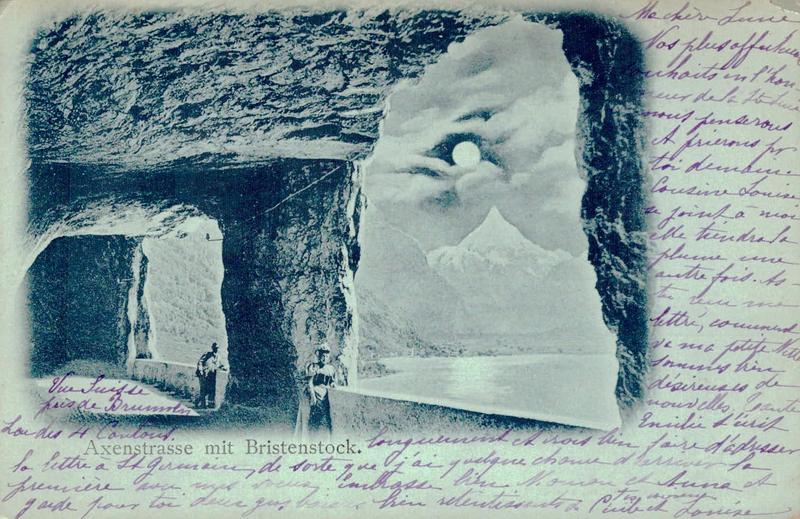 Ma chère Lucie
Nos plus affectueux
souhaits en l'hon
neur de la
nous penserons
et prierons pr
toi demain.
Cousine Louise
se joint à moi
elle tiendra la
plume une
autre fois. As-
tu reçu ma
lettre, comment
va ma petite
sommes bien
désireuses de
nouvelles, tante
Emilie t'écrit
longuement et crois bien faire d'adresser
la lettre à St Germain, de sorte que j'ai quelque chance d'arriver la
première avec mes voeux, embrasse bien Maman et Anna et
garde pour toi deux gros baisers bien retentissants de
et Louise
Vue Suisse
près de Brunnen
Lac des 4 Cantons.
Axenstrasse mit Bristenstock.